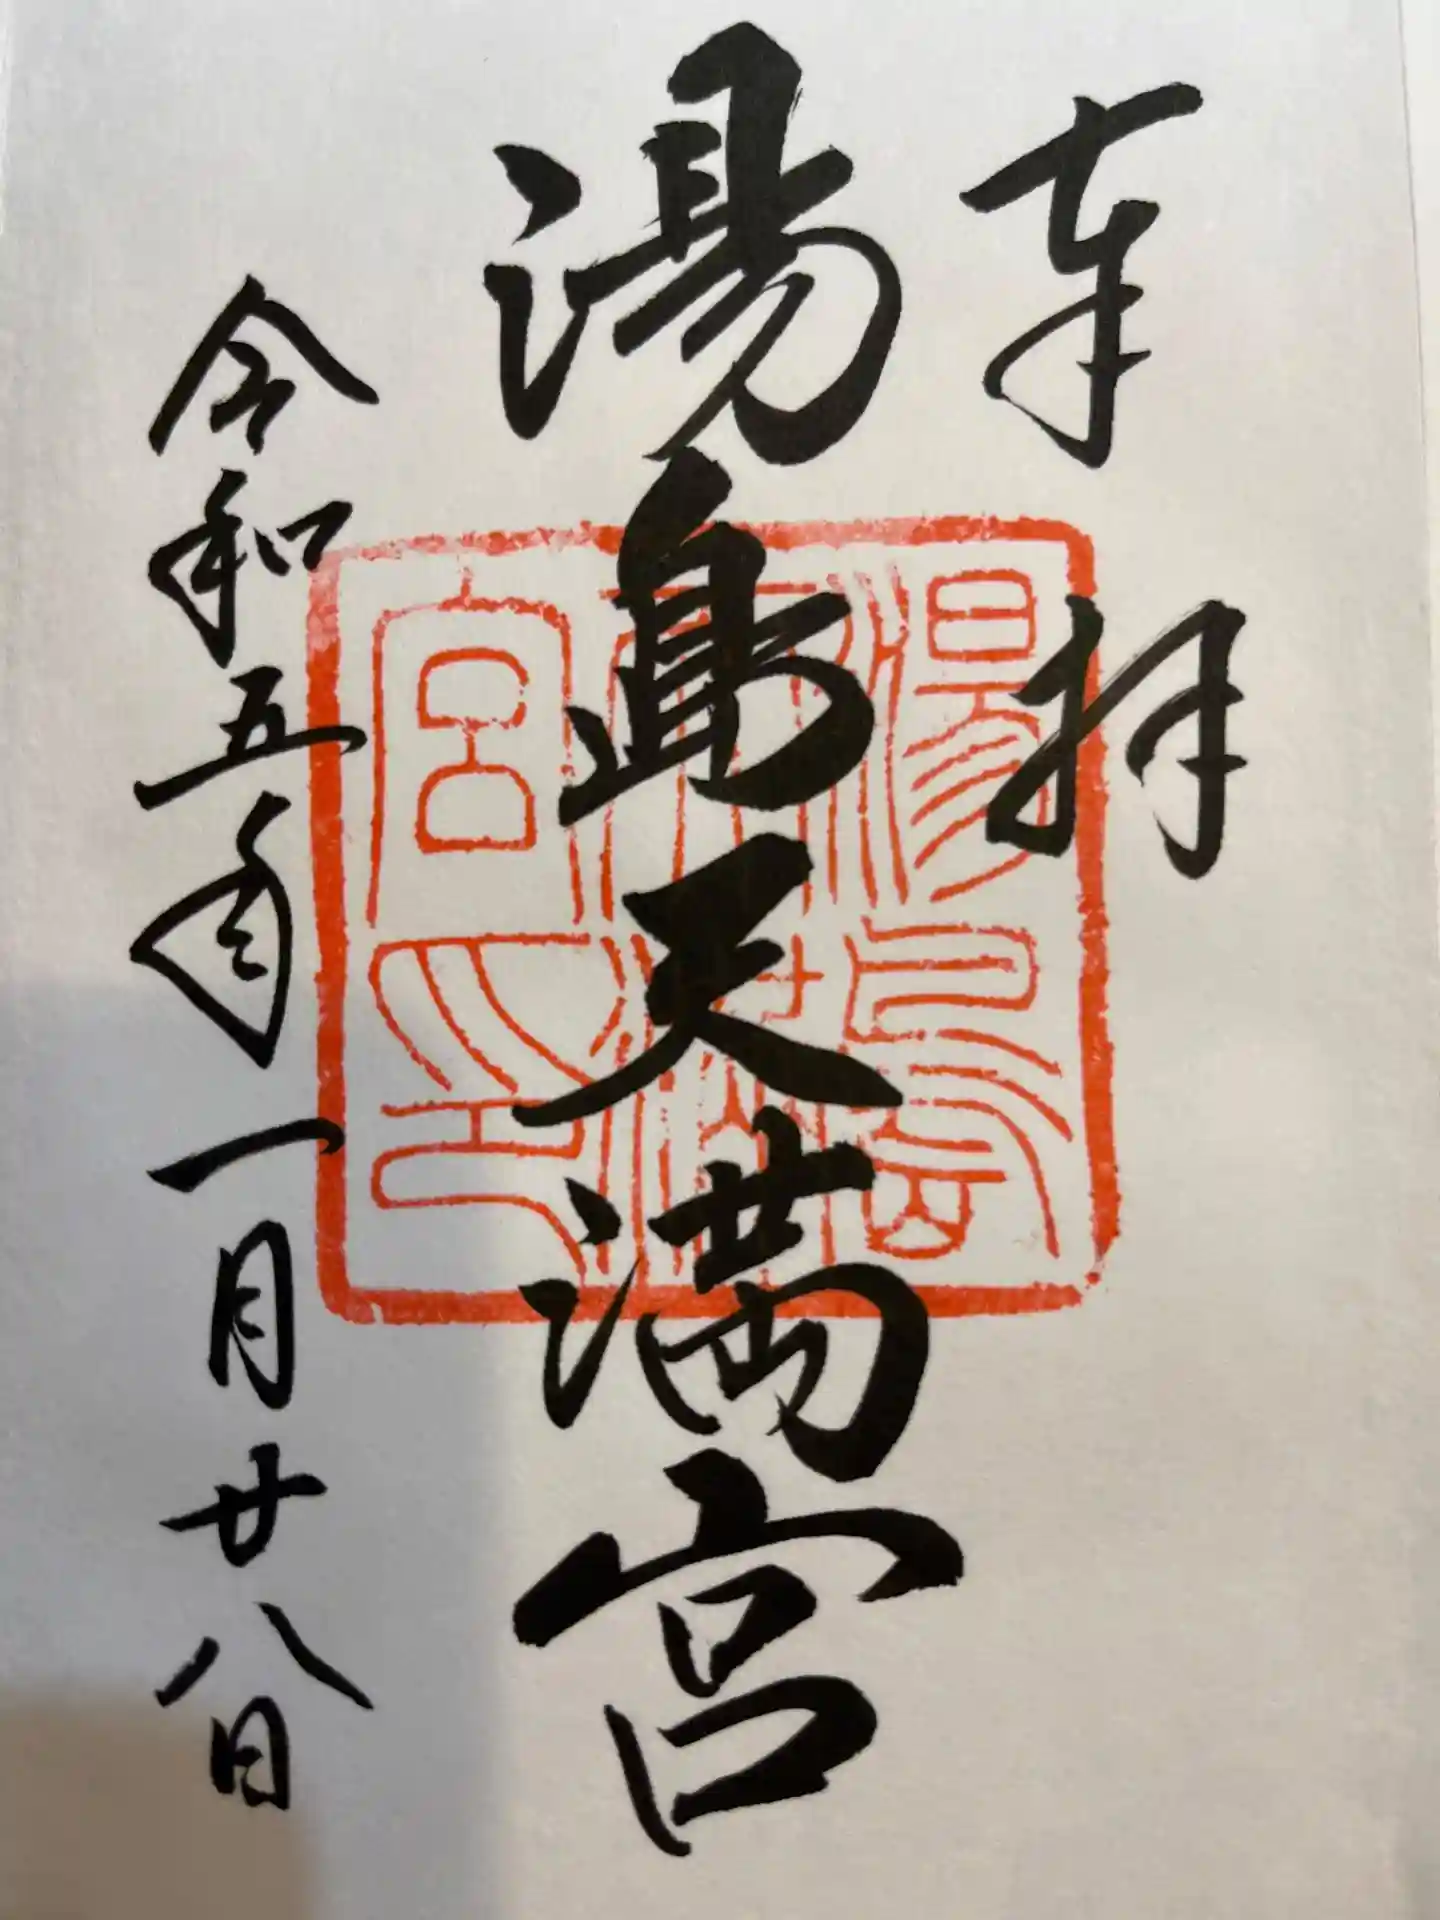 奉拝
湯島天満宮
令和五年一月廿八日
湯島
天満
宮印